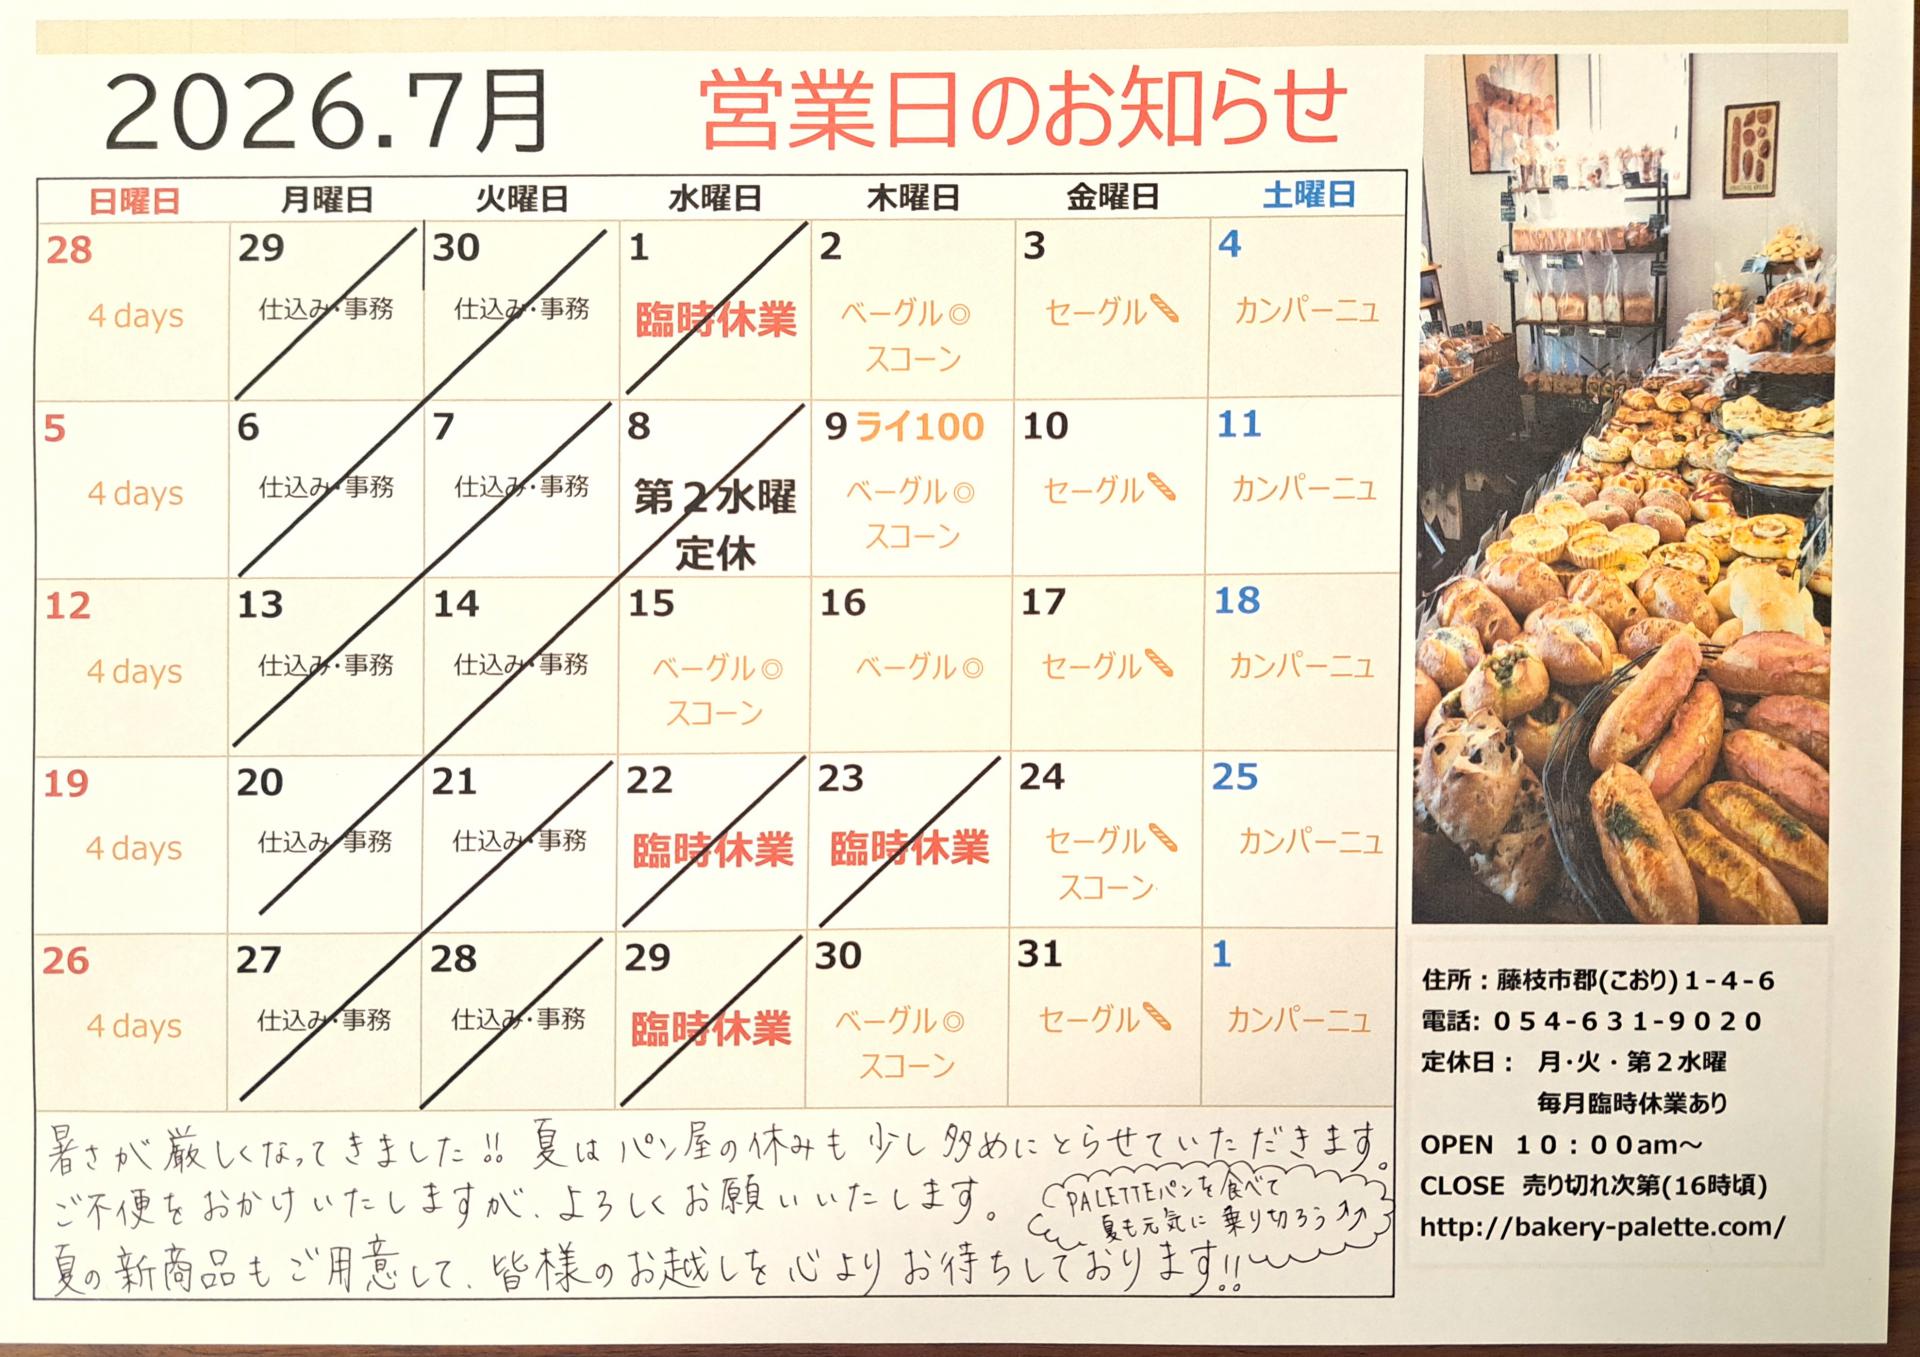 2026.7月 営業日のお知らせ
日曜日 月曜日 火曜日 水曜日 木曜日 金曜日 土曜日
28 29 30 1 2 3 4
4 days 仕込み・事務 仕込み・事務 臨時休業 ベーグル◎ セーグル🥖 カンパーニュ
スコーン
5 6 7 8 9 ライ100 10 11
4 days 仕込み・事務 仕込み・事務 第2水曜 ベーグル◎ セーグル🥖 カンパーニュ
定休 スコーン
12 13 14 15 16 17 18
4 days 仕込み・事務 仕込み・事務 ベーグル◎ ベーグル◎ セーグル🥖 カンパーニュ
スコーン
19 20 21 22 23 24 25
4 days 仕込み・事務 仕込み・事務 臨時休業 臨時休業 セーグル🥖 カンパーニュ
スコーン
26 27 28 29 30 31 1
4 days 仕込み・事務 仕込み・事務 臨時休業 ベーグル◎ セーグル🥖 カンパーニュ
スコーン
暑さが厳しくなってきました!! 夏はパン屋の休みも少し多めにとらせていただきます。
ご不便をおかけいたしますが、よろしくお願いいたします。
PALETTEパンを食べて
夏も元気に乗り切ろう↗↗
夏の新商品もご用意して、皆様のお越しを心よりお待ちしております!!
住所：藤枝市郡(こおり)1-4-6
電話：054-631-9020
定休日： 月・火・第2水曜
毎月臨時休業あり
OPEN 10：00am～
CLOSE 売り切れ次第(16時頃)
http://bakery-palette.com/